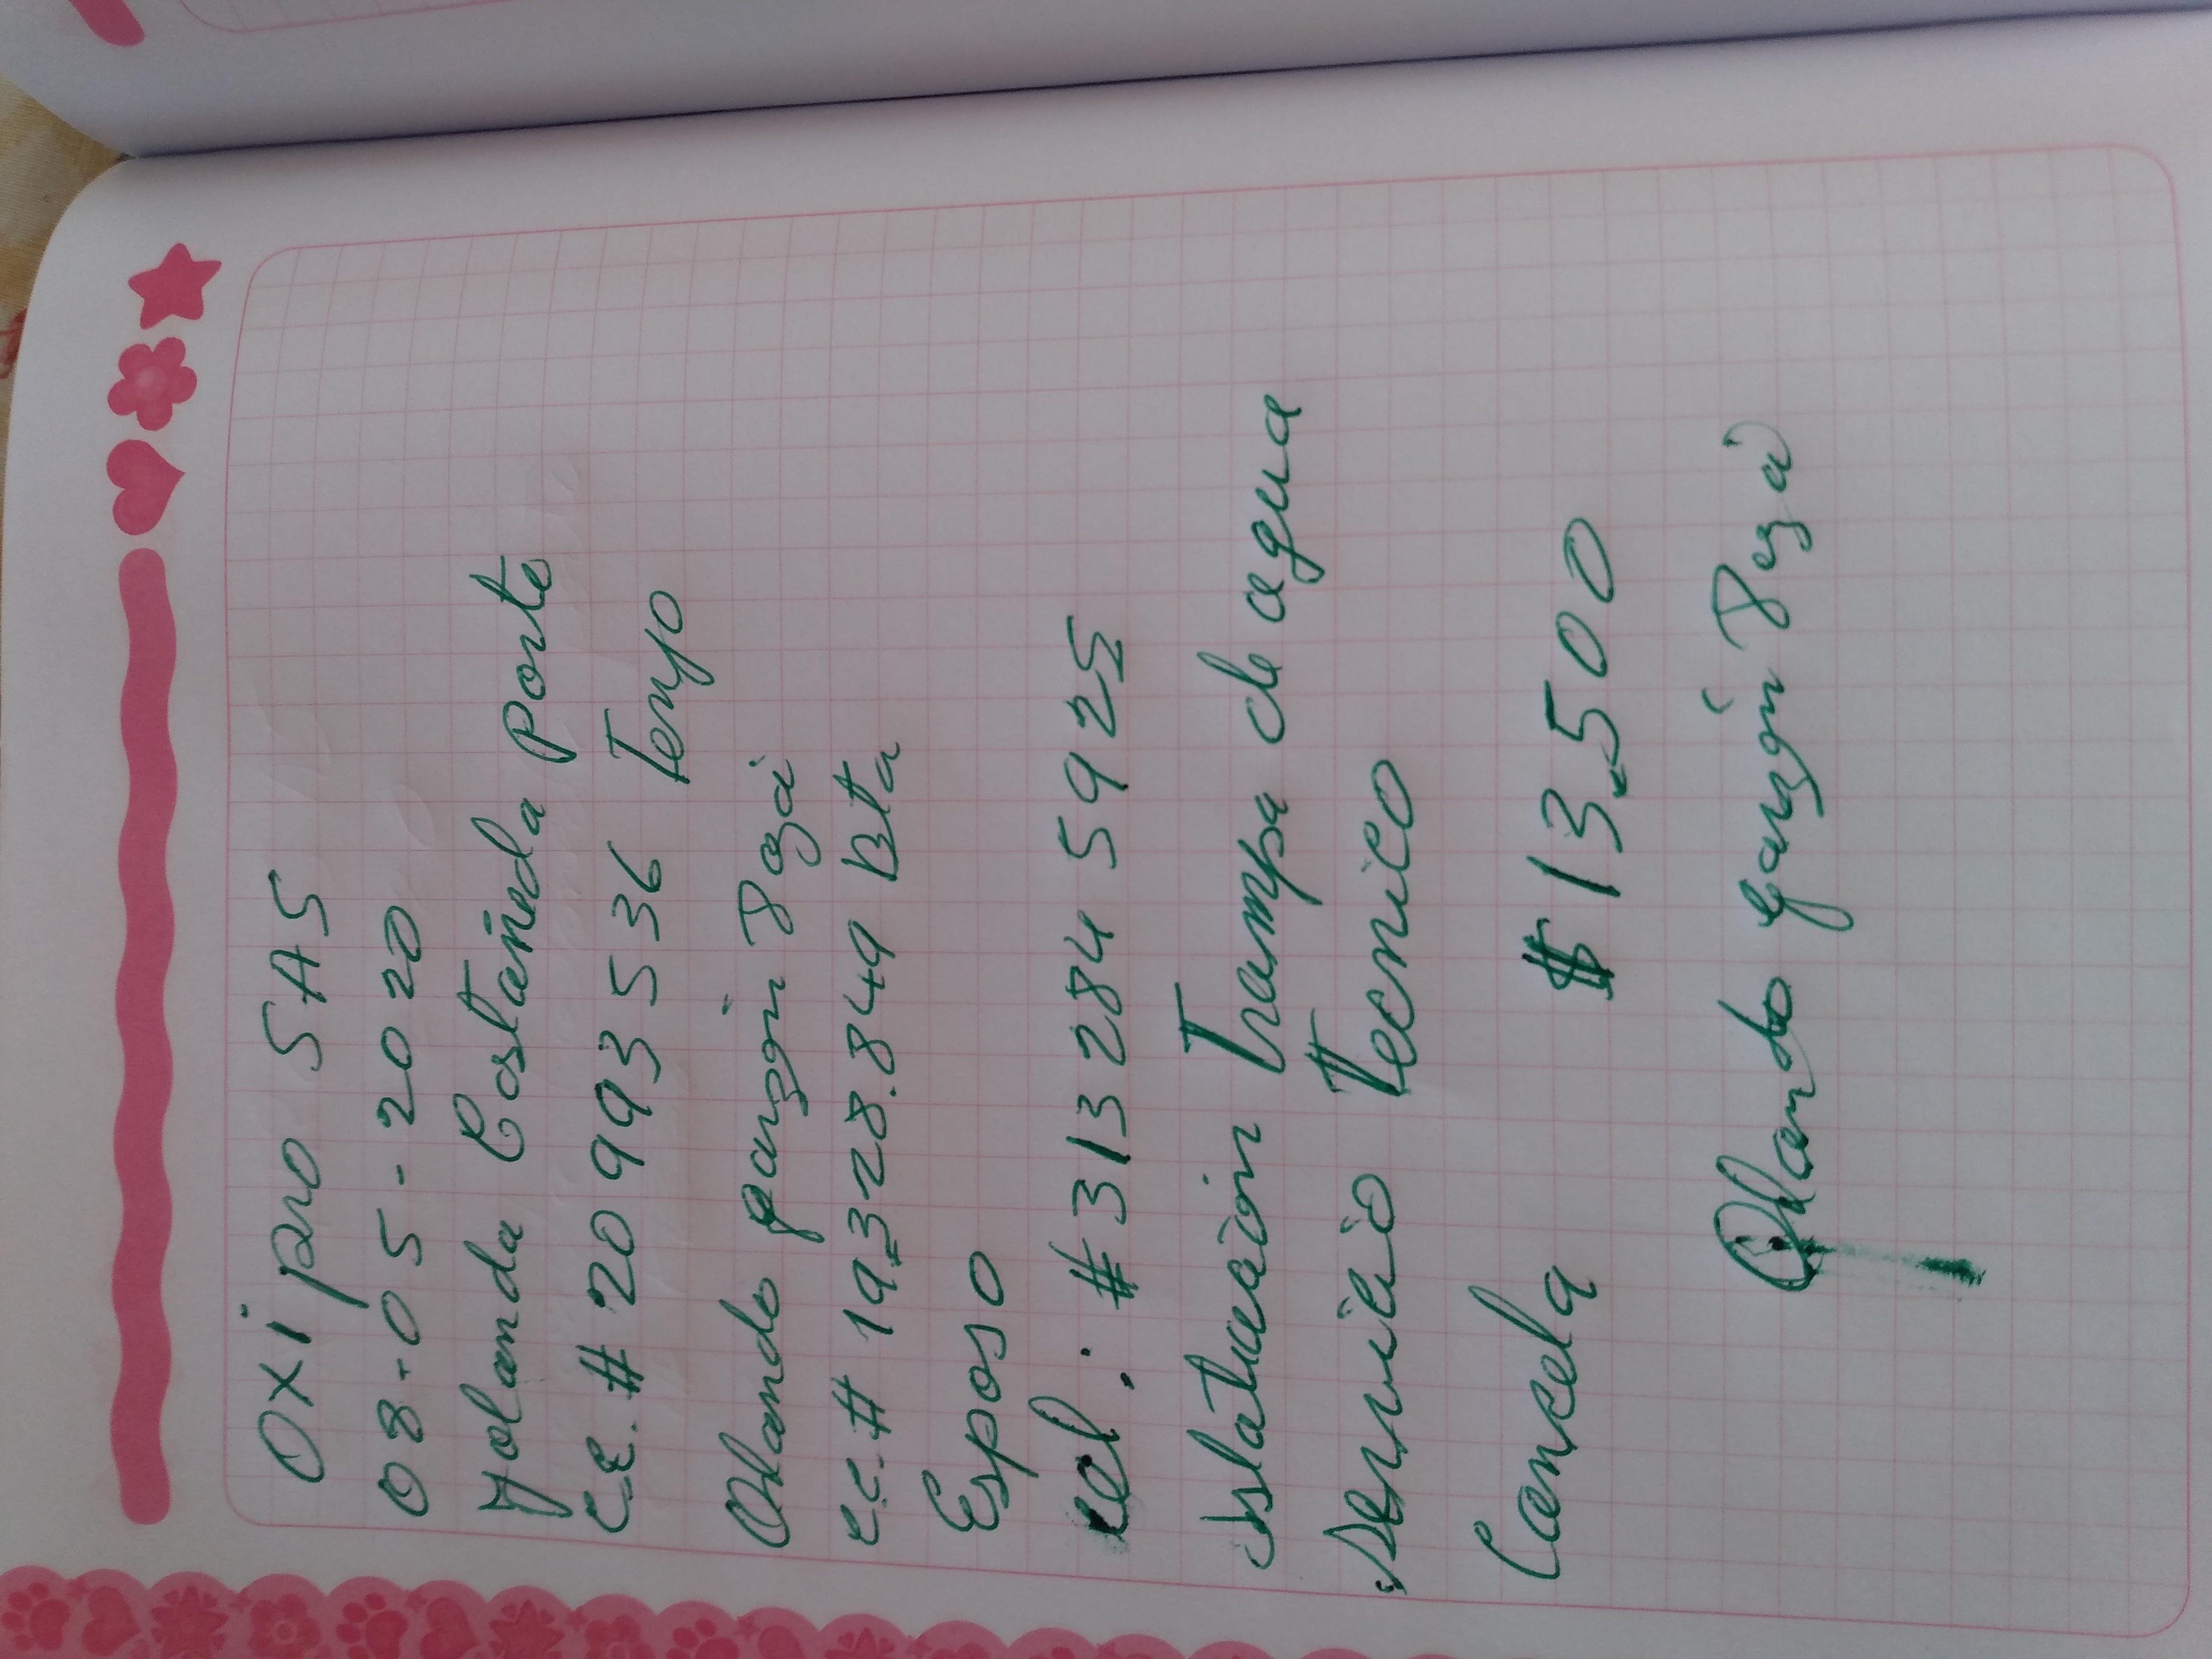 OXI pro SAS
08-05-2020
Yolanda Castañeda Porte
C.C. # 20993536 Tenjo
Orlando garzón
C.C. # 19.328.849 Bta
Esposo
cel: # 313 284 5925
Trampa de agua
servicio Tecnico
Cancela $ 13.500
Orlando garzón